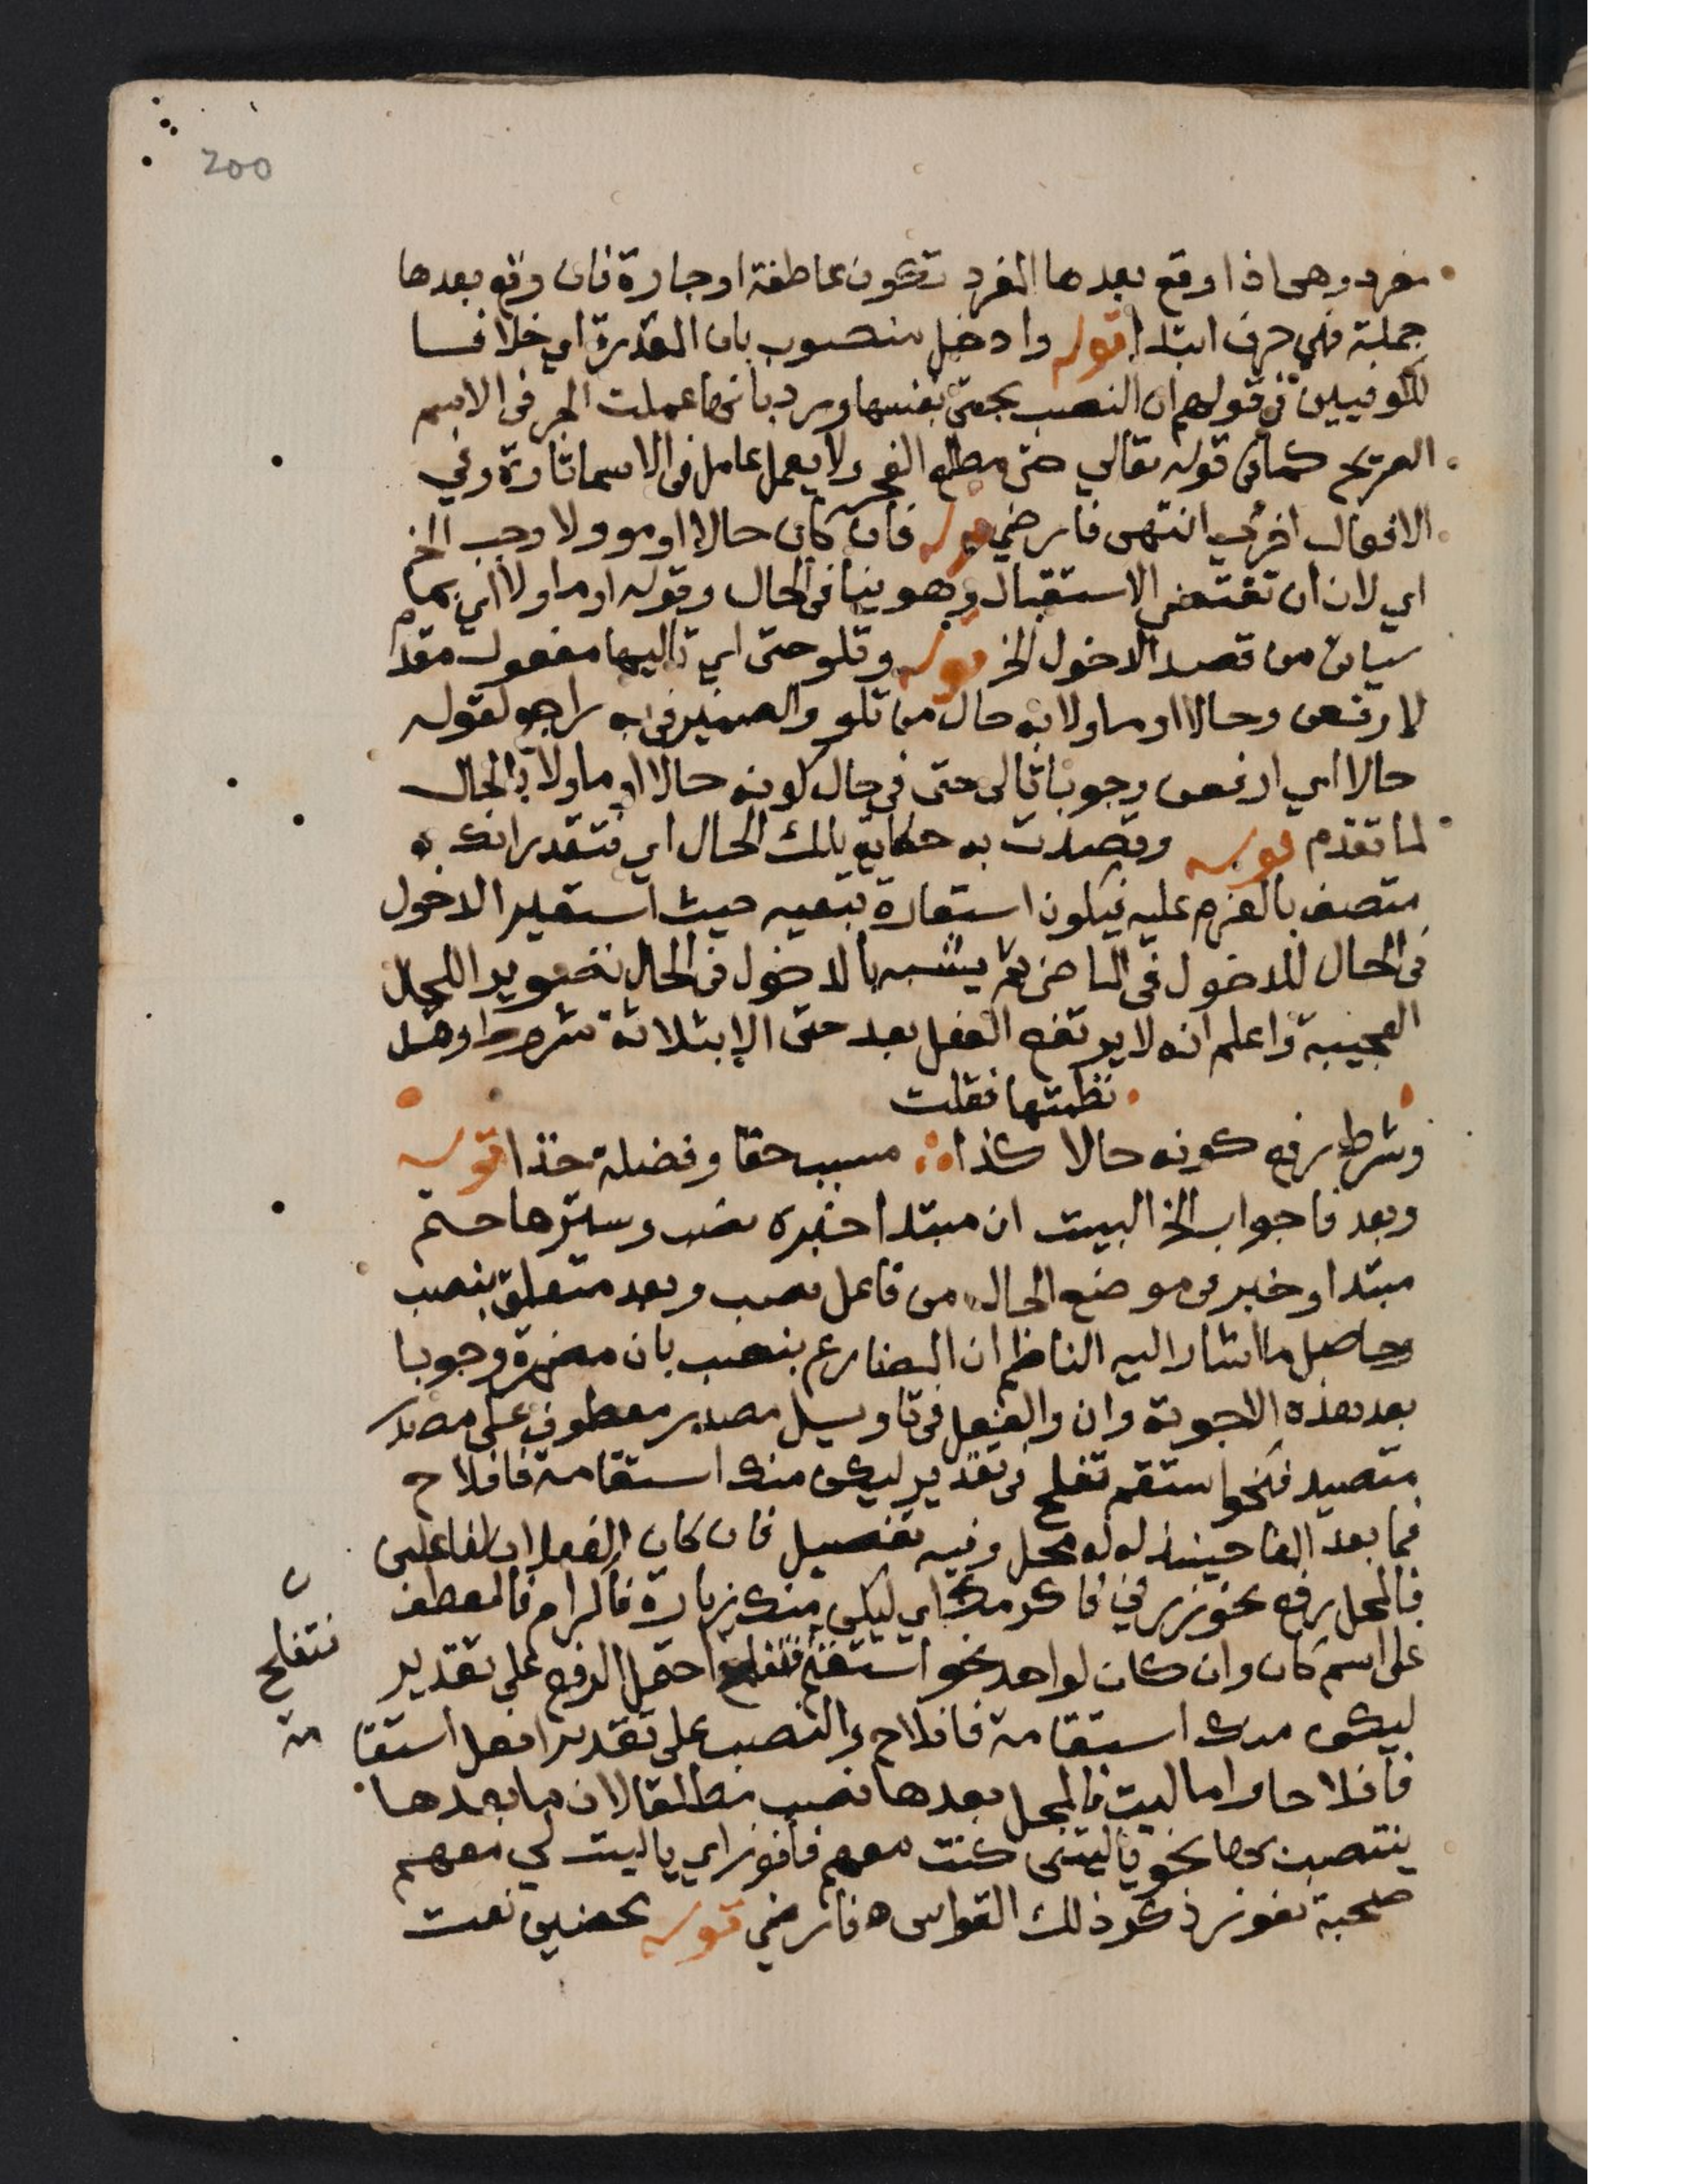 200
مفرد وهى اذا وقع بعدها المفرد تكون عاطفة او جارة فان وقع بعدها
جملة فهي حرف ابتدا قوله وادخل منصوب بان المقدرة اي خلافا
للكوفيين في قولهم ان النصب بحتى نفسها ورد بانها عملت الجر فى الاسم
الصريح كما فى قوله تعالي حتى مطلع الفجر ولا يعمل عامل فى الاسما تارة وفي
الافعال اخرى انتهى فارضي قوله فان كان حالا او موولا وجب الخ
اي لان ان تقتضي الاستقبال وهو ينا فى الحال وقوله او ماولا اي بما
سياتى من قصد الدخول الخ قوله وتلو حتى اي تاليها مفعول مقدم
لارفعن وحالا او ماولا به حال من تلو والضمير فى به راجع لقوله
حالا اي ارفعن وجوبا تالى حتى فى حال كونه حالا او ماولا بالحال
لما تقدم قوله وقصدت به حكاية تلك الحال اي فتقدر انك
متصف بالعزم عليه فيكون استعارة تبعيه حيث استعير الدخول
فى الحال للدخول فى الماضى بعد يشبه بالدخول فى الحال تصويرا للحال
العجيبة واعلم انه لا يرتفع الفعل بعد حتى الا بثلاثة شروط وقد
نظمتها فقلت
وشرط رفع كونه حالا كذا ∴ مسبب حقا وفضلة خذا قوله
وبعد فا جواب الخ البيت ان مبتدا خبره نصب وسترها حتم
مبتدا وخبر فى موضع الحال من فاعل نصب وبعد متعلق بنصب
وحاصل ما اشار اليه الناظم ان المضارع ينصب بان مضمرة وجوبا
بعد هذه الاجوبة وان والفعل فى تاويل مصدر معطوف على مصدر
متصيد فنحو استقم تفلح فى تقدير ليكن منك استقامة فافلاح
فما بعد الفا حينئذ له محل وفيه تفصيل فان كان الفعل ان لفاعلين
فالمحل رفع نحو زرني فاكرمك اي ليكن منك زيارة فاكرام فالعطف
على اسم كان وان كان لواحد نحو استقم فتفلح احتمل الرفع على تقدير
ليكن منك استقامة فافلاح والنصب على تقدير افعل استقا
فافلاحا واما ليت فالمحل بعدها نصب مطلقا لان ما بعدها
ينتصب بها نحو ياليتنى كنت معهم فافوز اي ياليت لي معهم
صحبة نفوز ذكر ذلك القواس ه فارضي قوله محضين نعت
ن
فتفلح
مة